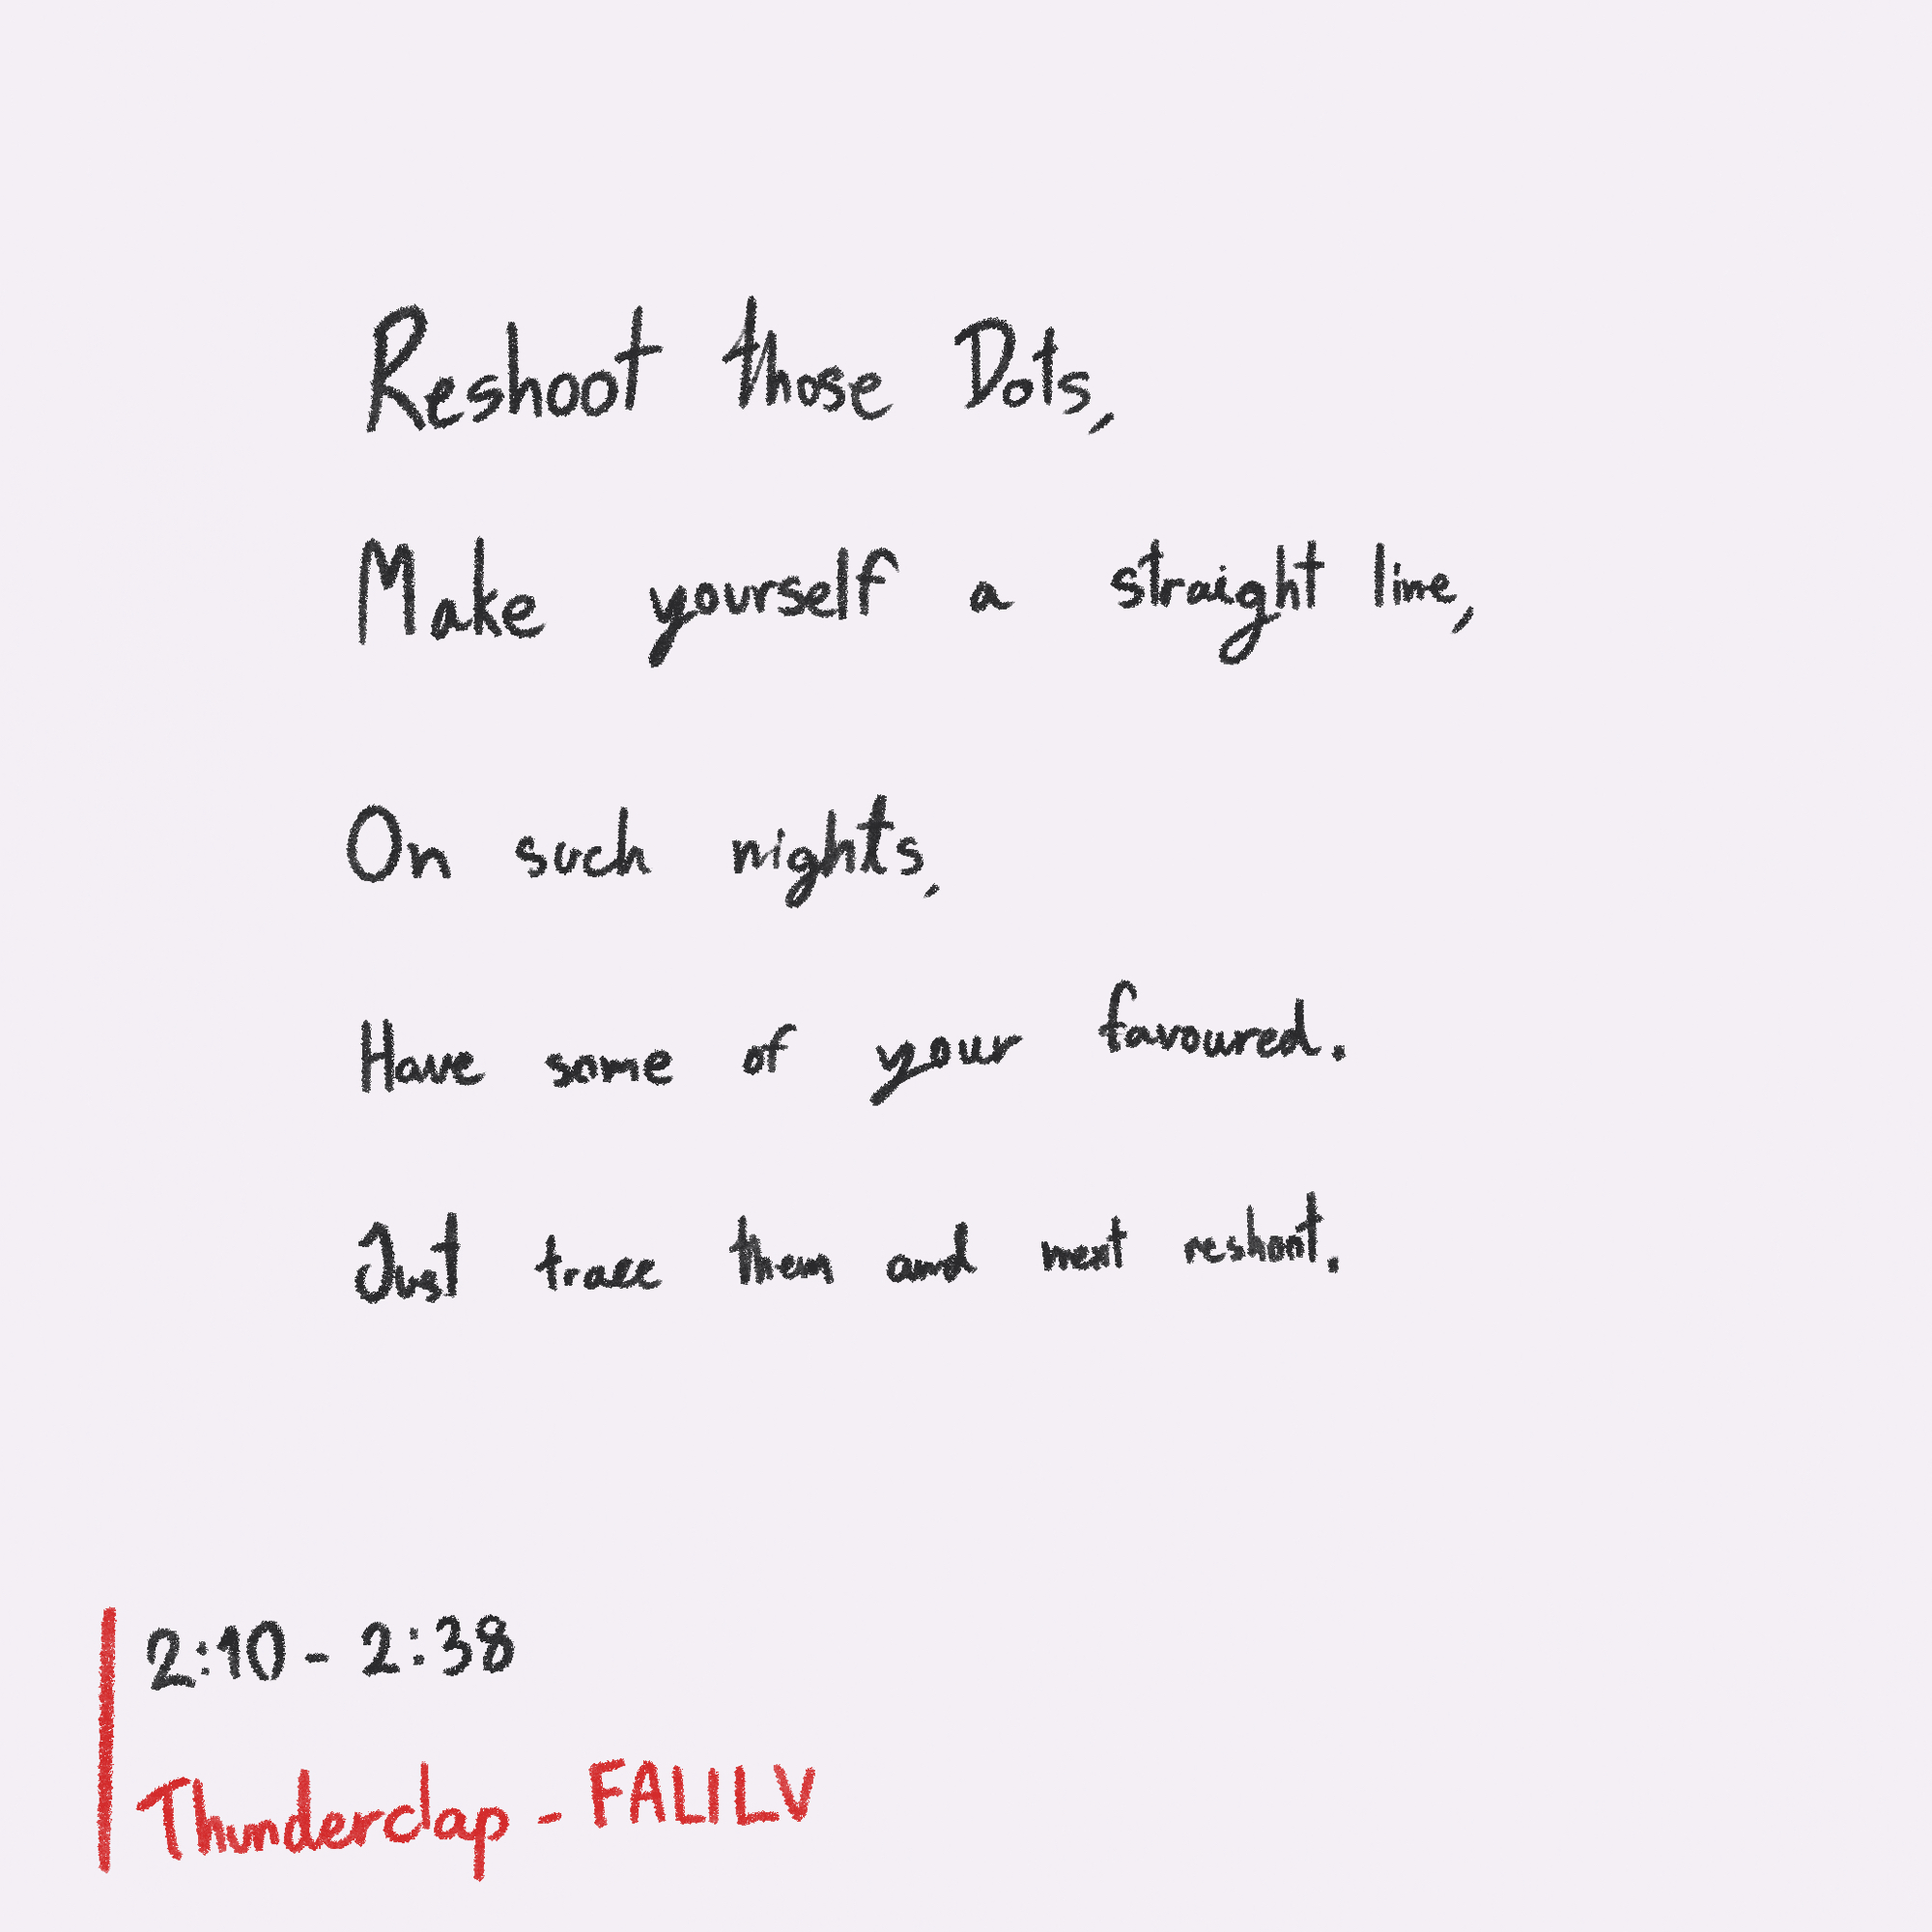 Reshoot those Dots,
Make yourself a straight line,
On such nights,
Have some of your favoured.
Just trace them and next reshoot.
2:10 - 2:38
Thunderclap - FALILV